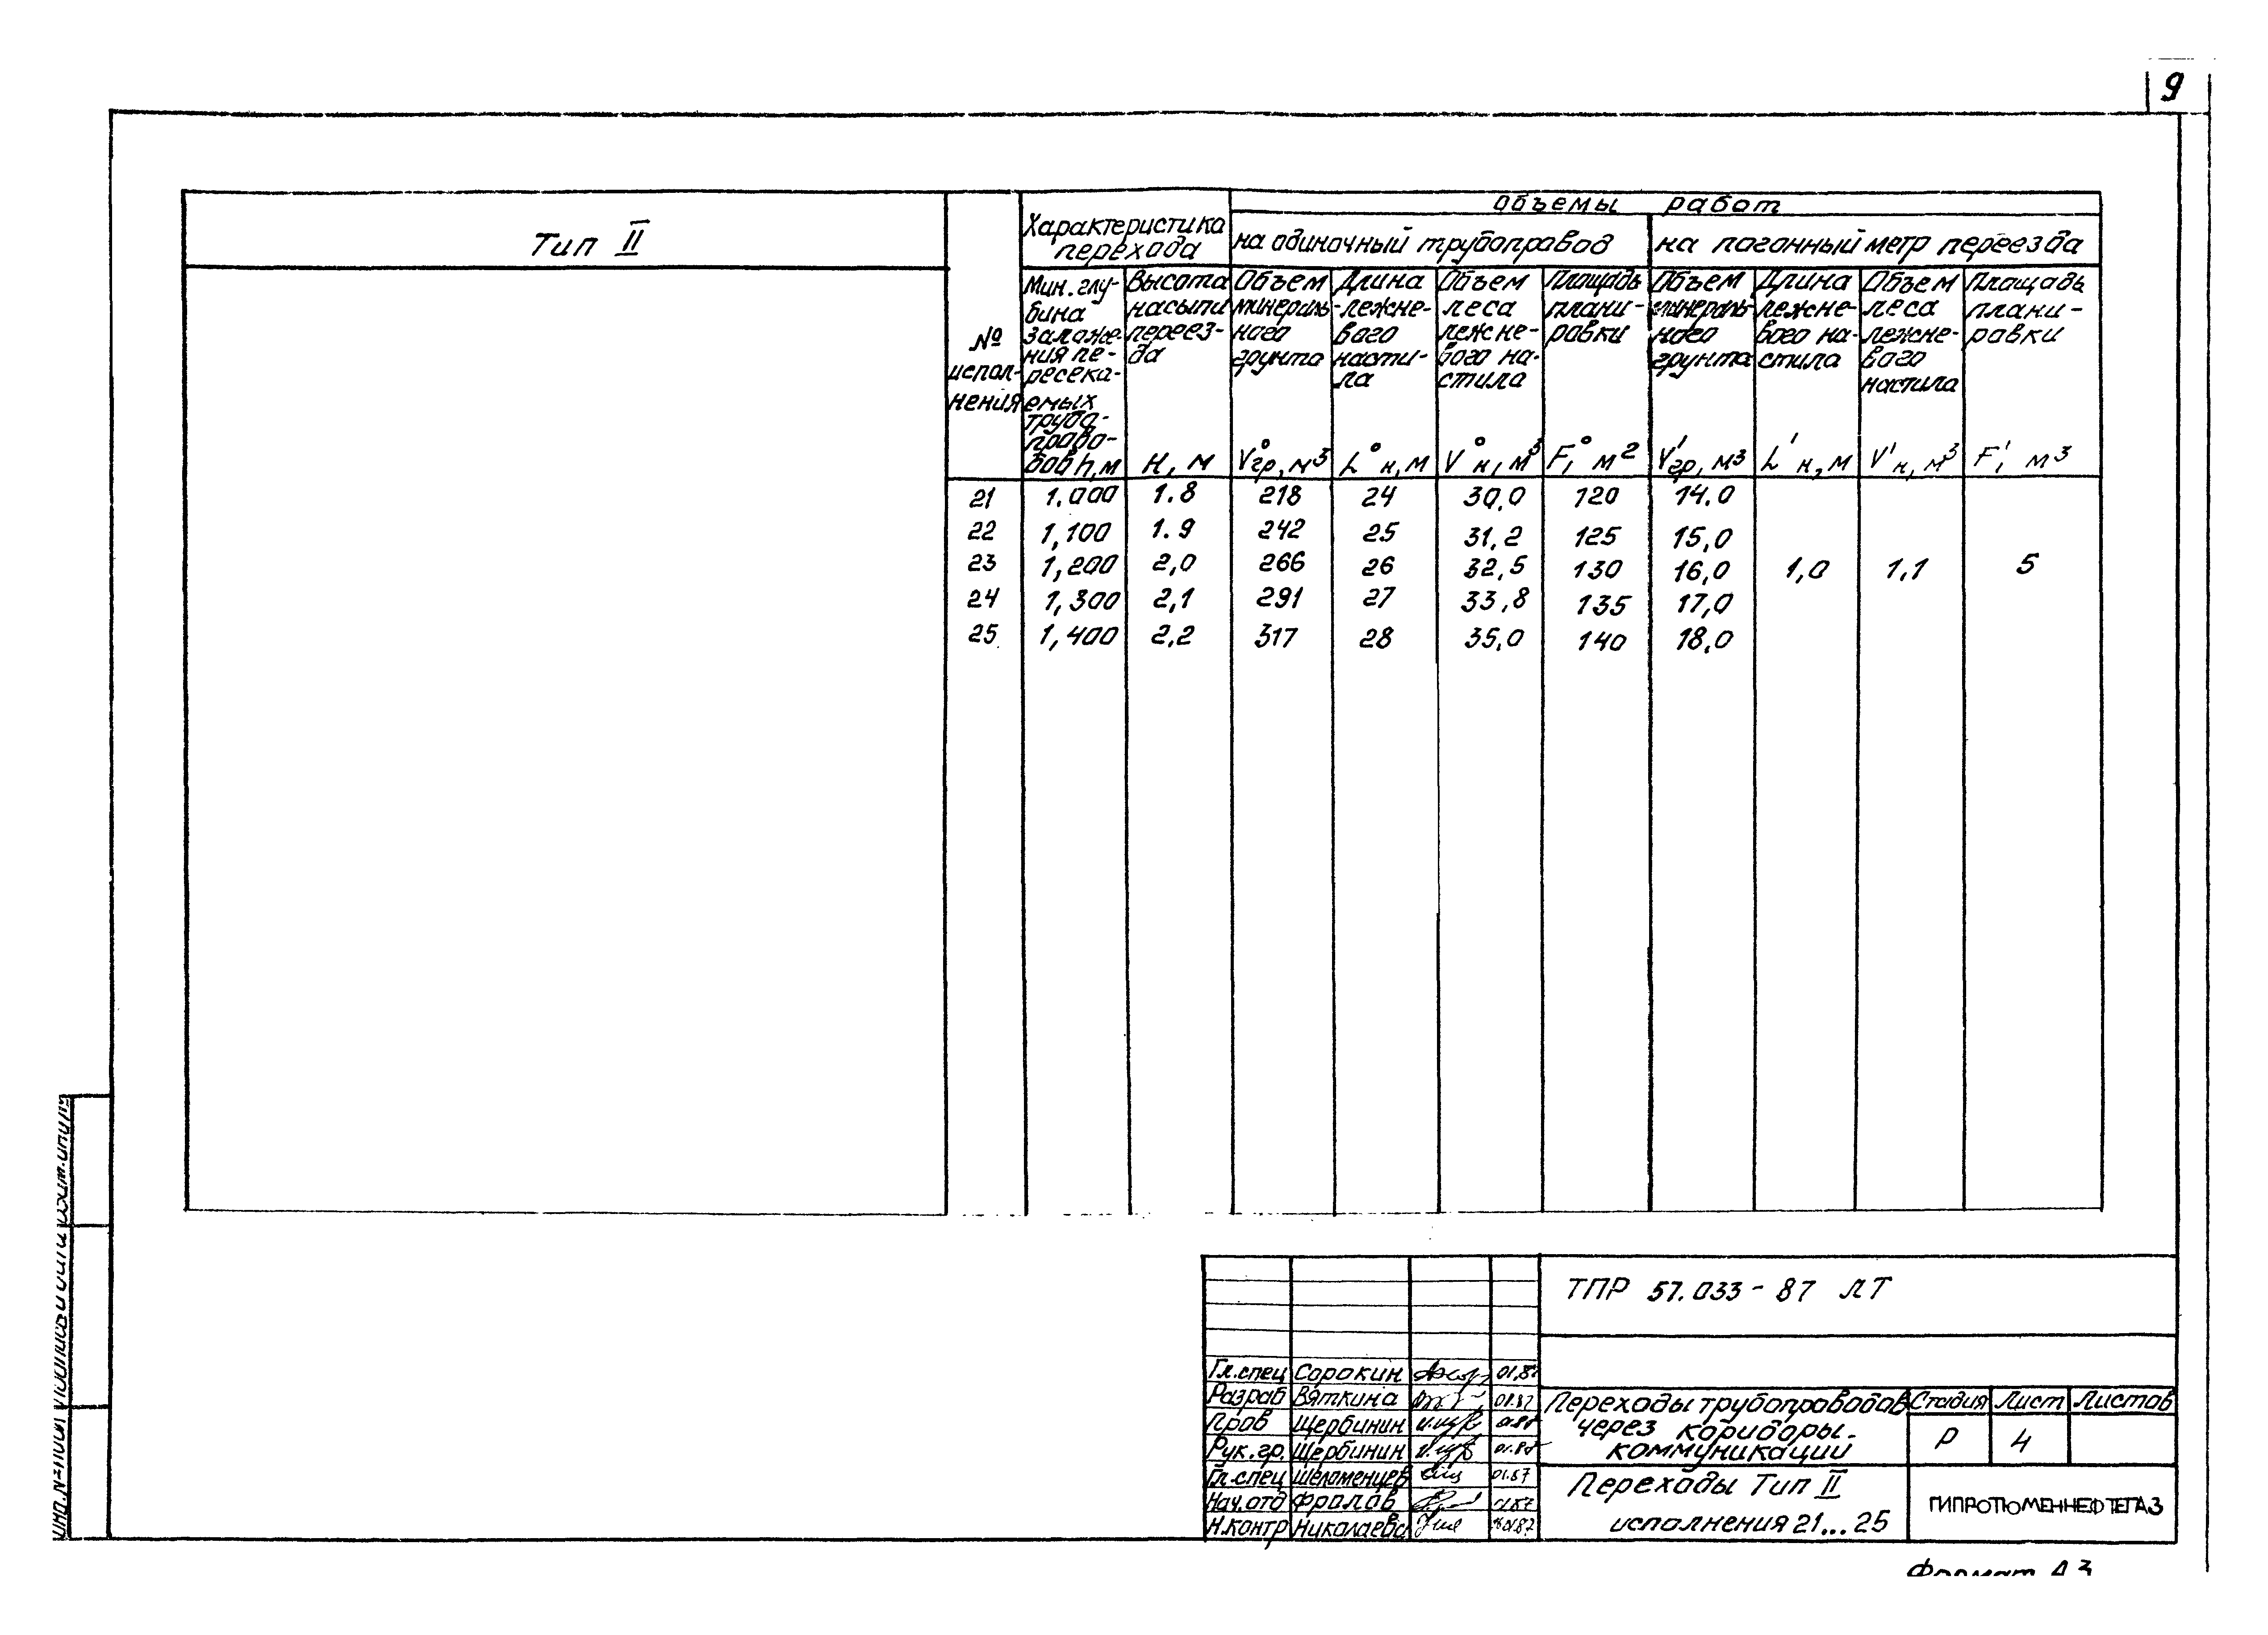 9
Тип II
№
испол-
нения
Характеристика
перехода
Объемы работ
на одиночный трубопровод
на погонный метр переезда
Мин. глу-
бина
заложе-
ния пе-
ресека-
емых
трубо-
прово-
дов h, м
Высота
насыпи
переез-
да
H, м
Объем
минераль-
ного
грунта
V°гр, м3
Длина
лежне-
вого
насти-
ла
L°н, м
Объем
леса
лежне-
вого на-
стила
V°н, м3
Площадь
плани-
ровки
F°, м2
Объем
минераль-
ного
грунта
V'гр, м3
Длина
лежне-
вого на-
стила
L'н, м
Объем
леса
лежне-
вого
настила
V'н, м3
Площадь
плани-
ровки
F', м3
21 1.000 1.8 218 24 30,0 120 14.0
22 1,100 1.9 242 25 31,2 125 15,0
23 1,200 2,0 266 26 32,5 130 16,0 1,0 1,1 5
24 1,300 2,1 291 27 33,8 135 17,0
25 1,400 2,2 317 28 35,0 140 18,0
ТПР 57.033-87 ЛТ
Гл.спец Сорокин 01.87
Разраб Вяткина 01.87
Пров Щербинин
Рук.гр. Щербинин 01.87
Гл.спец Шеломенцев 01.87
Нач.отд Фролов 01.87
Н.контр Николаева
Переходы трубопроводов
через коридоры
коммуникаций
Стадия Лист Листов
Р 4
Переходы Тип II
исполнения 21...25
ГИПРОТЮМЕННЕФТЕГАЗ
Формат А3